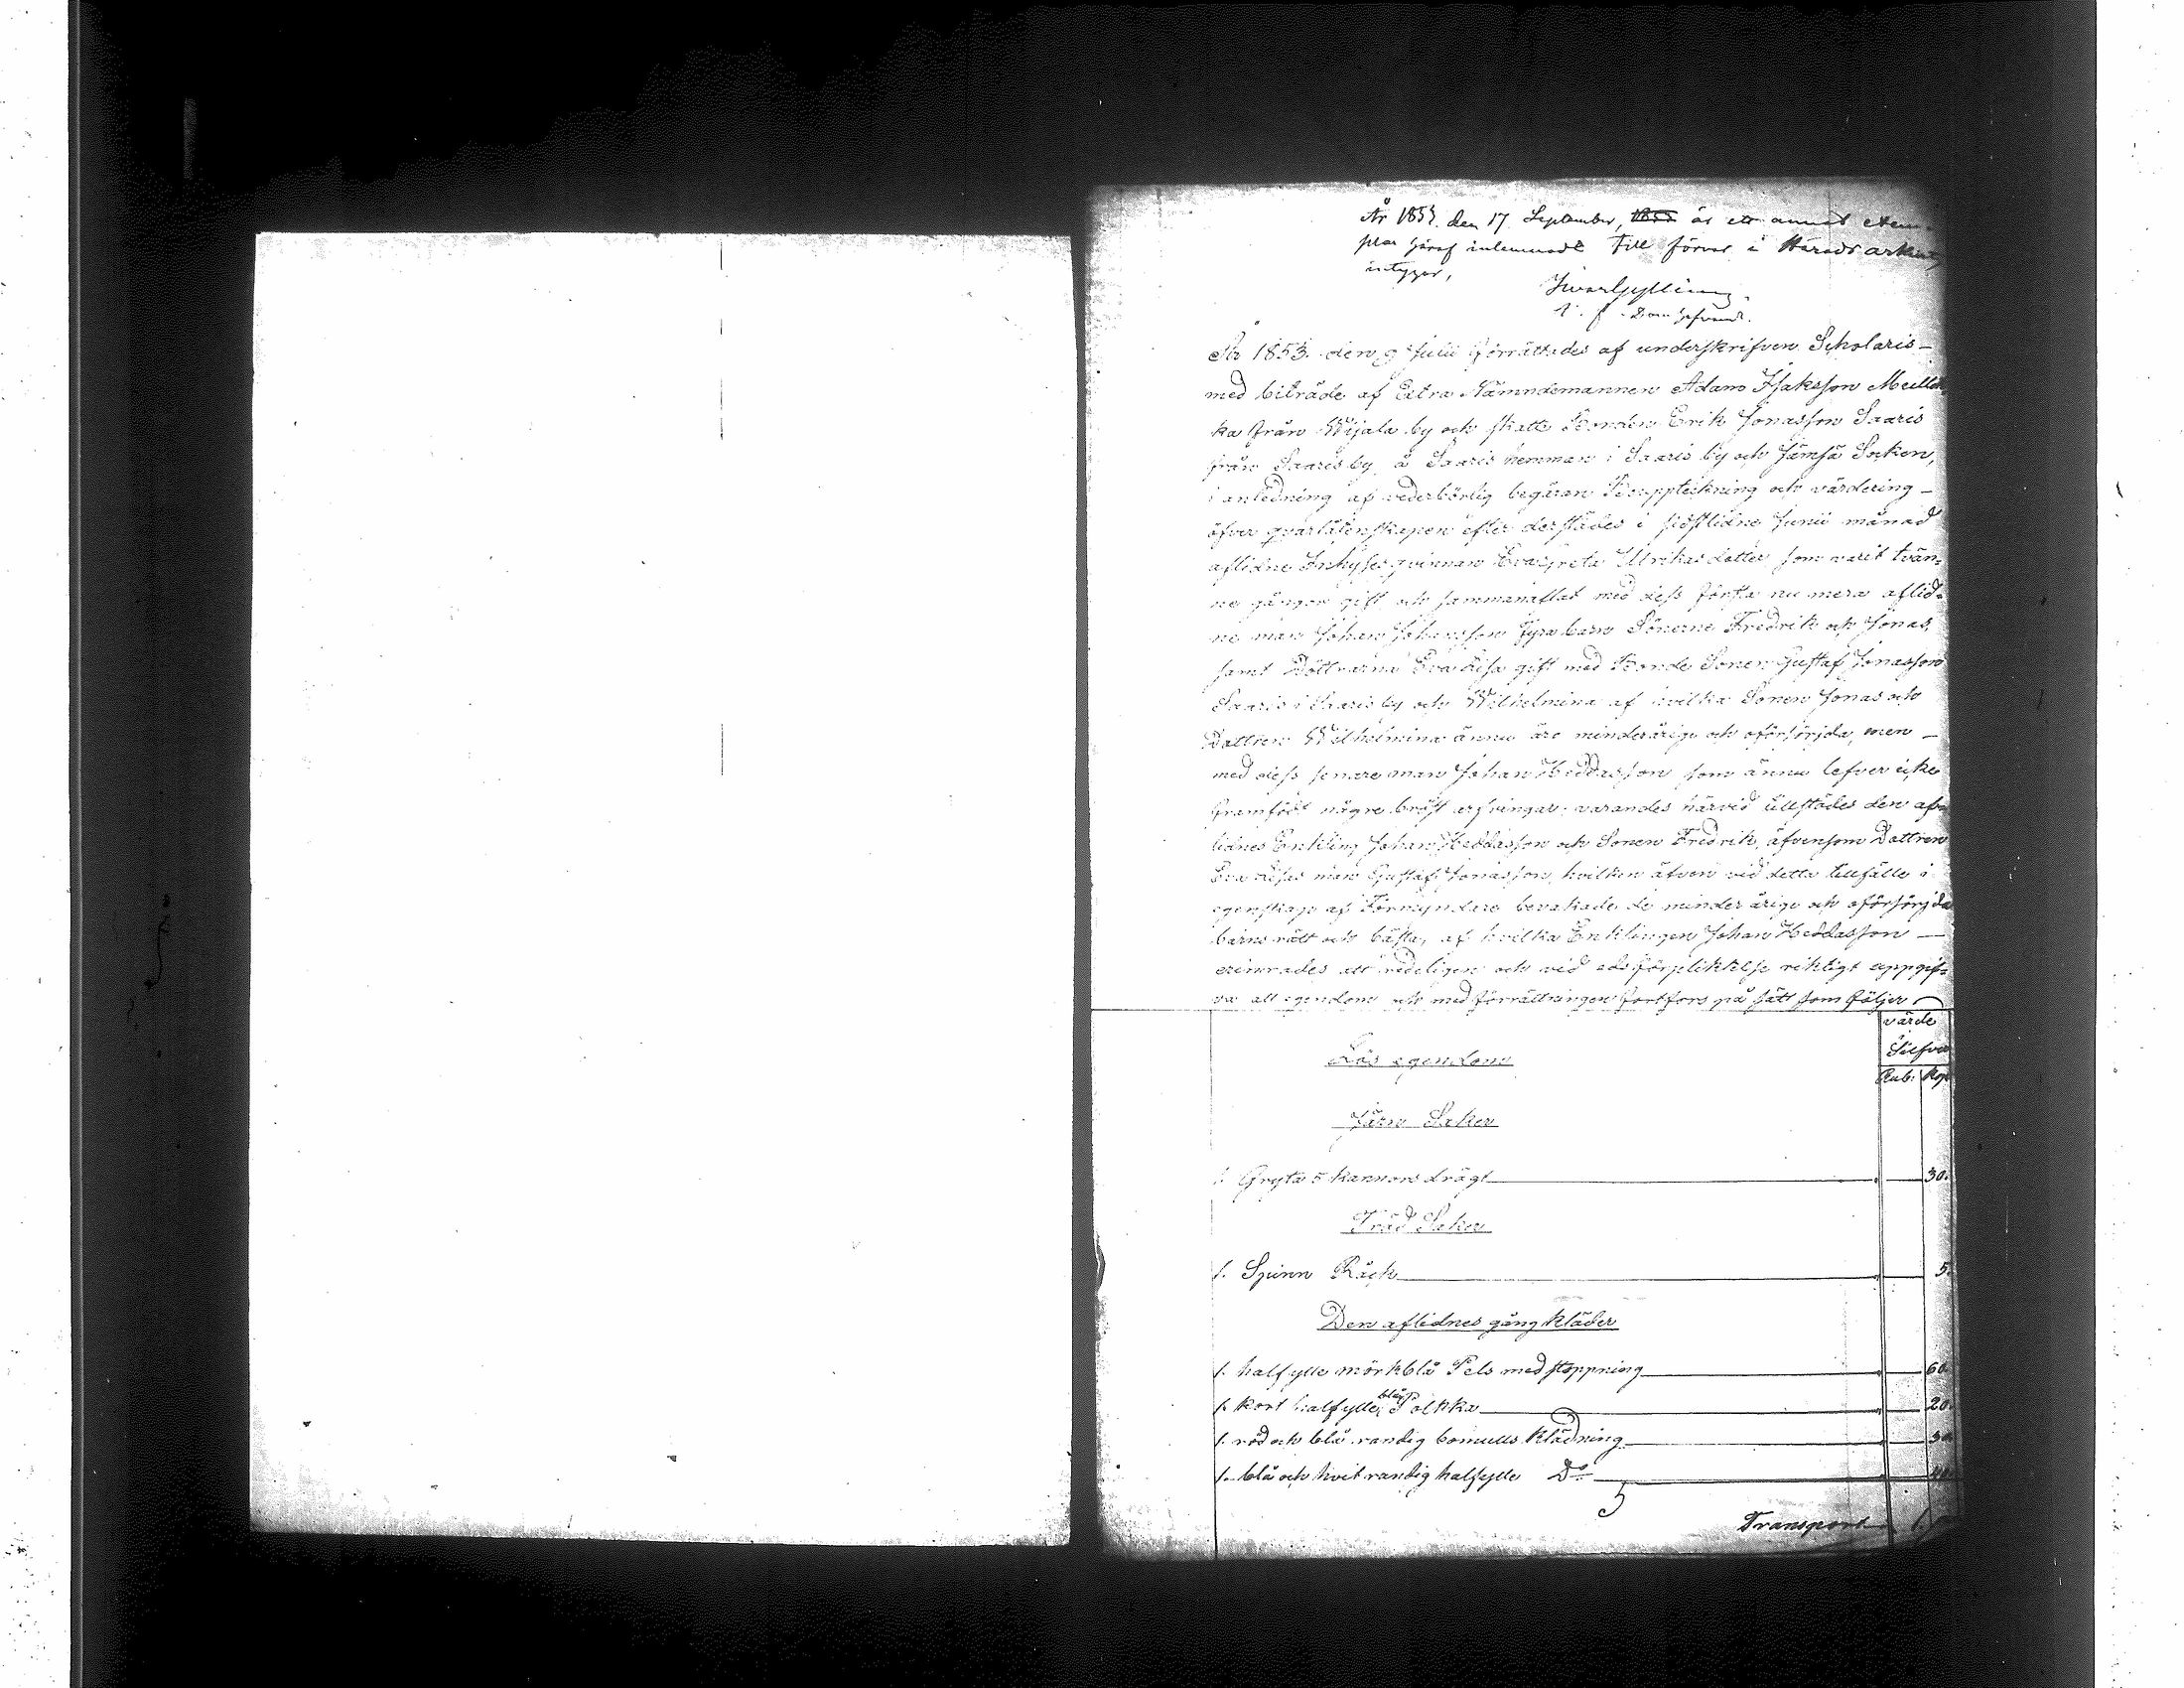 År 1853. den 17 September, 1853 är ett annat exem-
plar häraf inlemnadt till förvar i Härads arkivet,
intygar,
Ivar Gylling.
t. f. Domhafvand.
År 1853. den 9 Julii förrättades af underskrifven Scholaris –
med biträde af Extra Nämndemannen Adam Isaksson Meillok
ka från Wijala by och skatte Bonden Erik Jonasson Saaris
från Saaris by å Saaris hemman i Saaris by och Jämsä Socken,
i anledning af vederbörlig begäran Bouppteckning och värdering –
öfver qvarlåtenskapen efter derstädes i sidstlidne Junii månad
aflidne Inhyses qvinnan Eva Greta Ulrikasdotter som varit tvän=
ne gånger gift och sammanaflat med dess första nu mera aflid=
ne man Johan Johansson fyra barn Sönerne Fredrik och Jonas,
samt Döttrarna Eva Lisa gift med Bonde Sonen Gustaf Jonasson
Saaris i Saaris by och Wilhelmina af hvilka Sonen Jonas och
Dottren Wilhelmina ännu äro minderårige och oförsörjda, men –
med dess senare man Johan Heddasson som ännu lefver icke
framfödt några bröst arfvingar; varandes härvid tillstädes den af=
lidnes Enkling Johan Heddasson och Sonen Fredrik, äfvensom Dottren
Eva Lisas man Gustaf Jonasson, hvilken äfven vid detta tillfälle i
egenskap af Förmyndare bevakade de minderårige och oförsörjda
barns rätt och bästa, af hvilka Enklingen Johan Heddasson –
erinrades att redeligen och vid edsförpliktelse riktigt uppgif=
va all egendom och med förrättningen fortfors på sätt som följer
värde
Silfver
Rub: Kop
Lös egendom
Järn Saker
1. Gryta 5 kannors drägt 30.
Träd Saker
1. Spinn Råck 5.
Den aflidnes gång kläder
1. halfylle mörkblå Pels med stoppning 60.
1. kort halfylle blågr. Polkka 20.
1. röd och blå randig bomulls Klädning 30.
1. blå och hvit randig halfylle Do 40.
Transport 1.